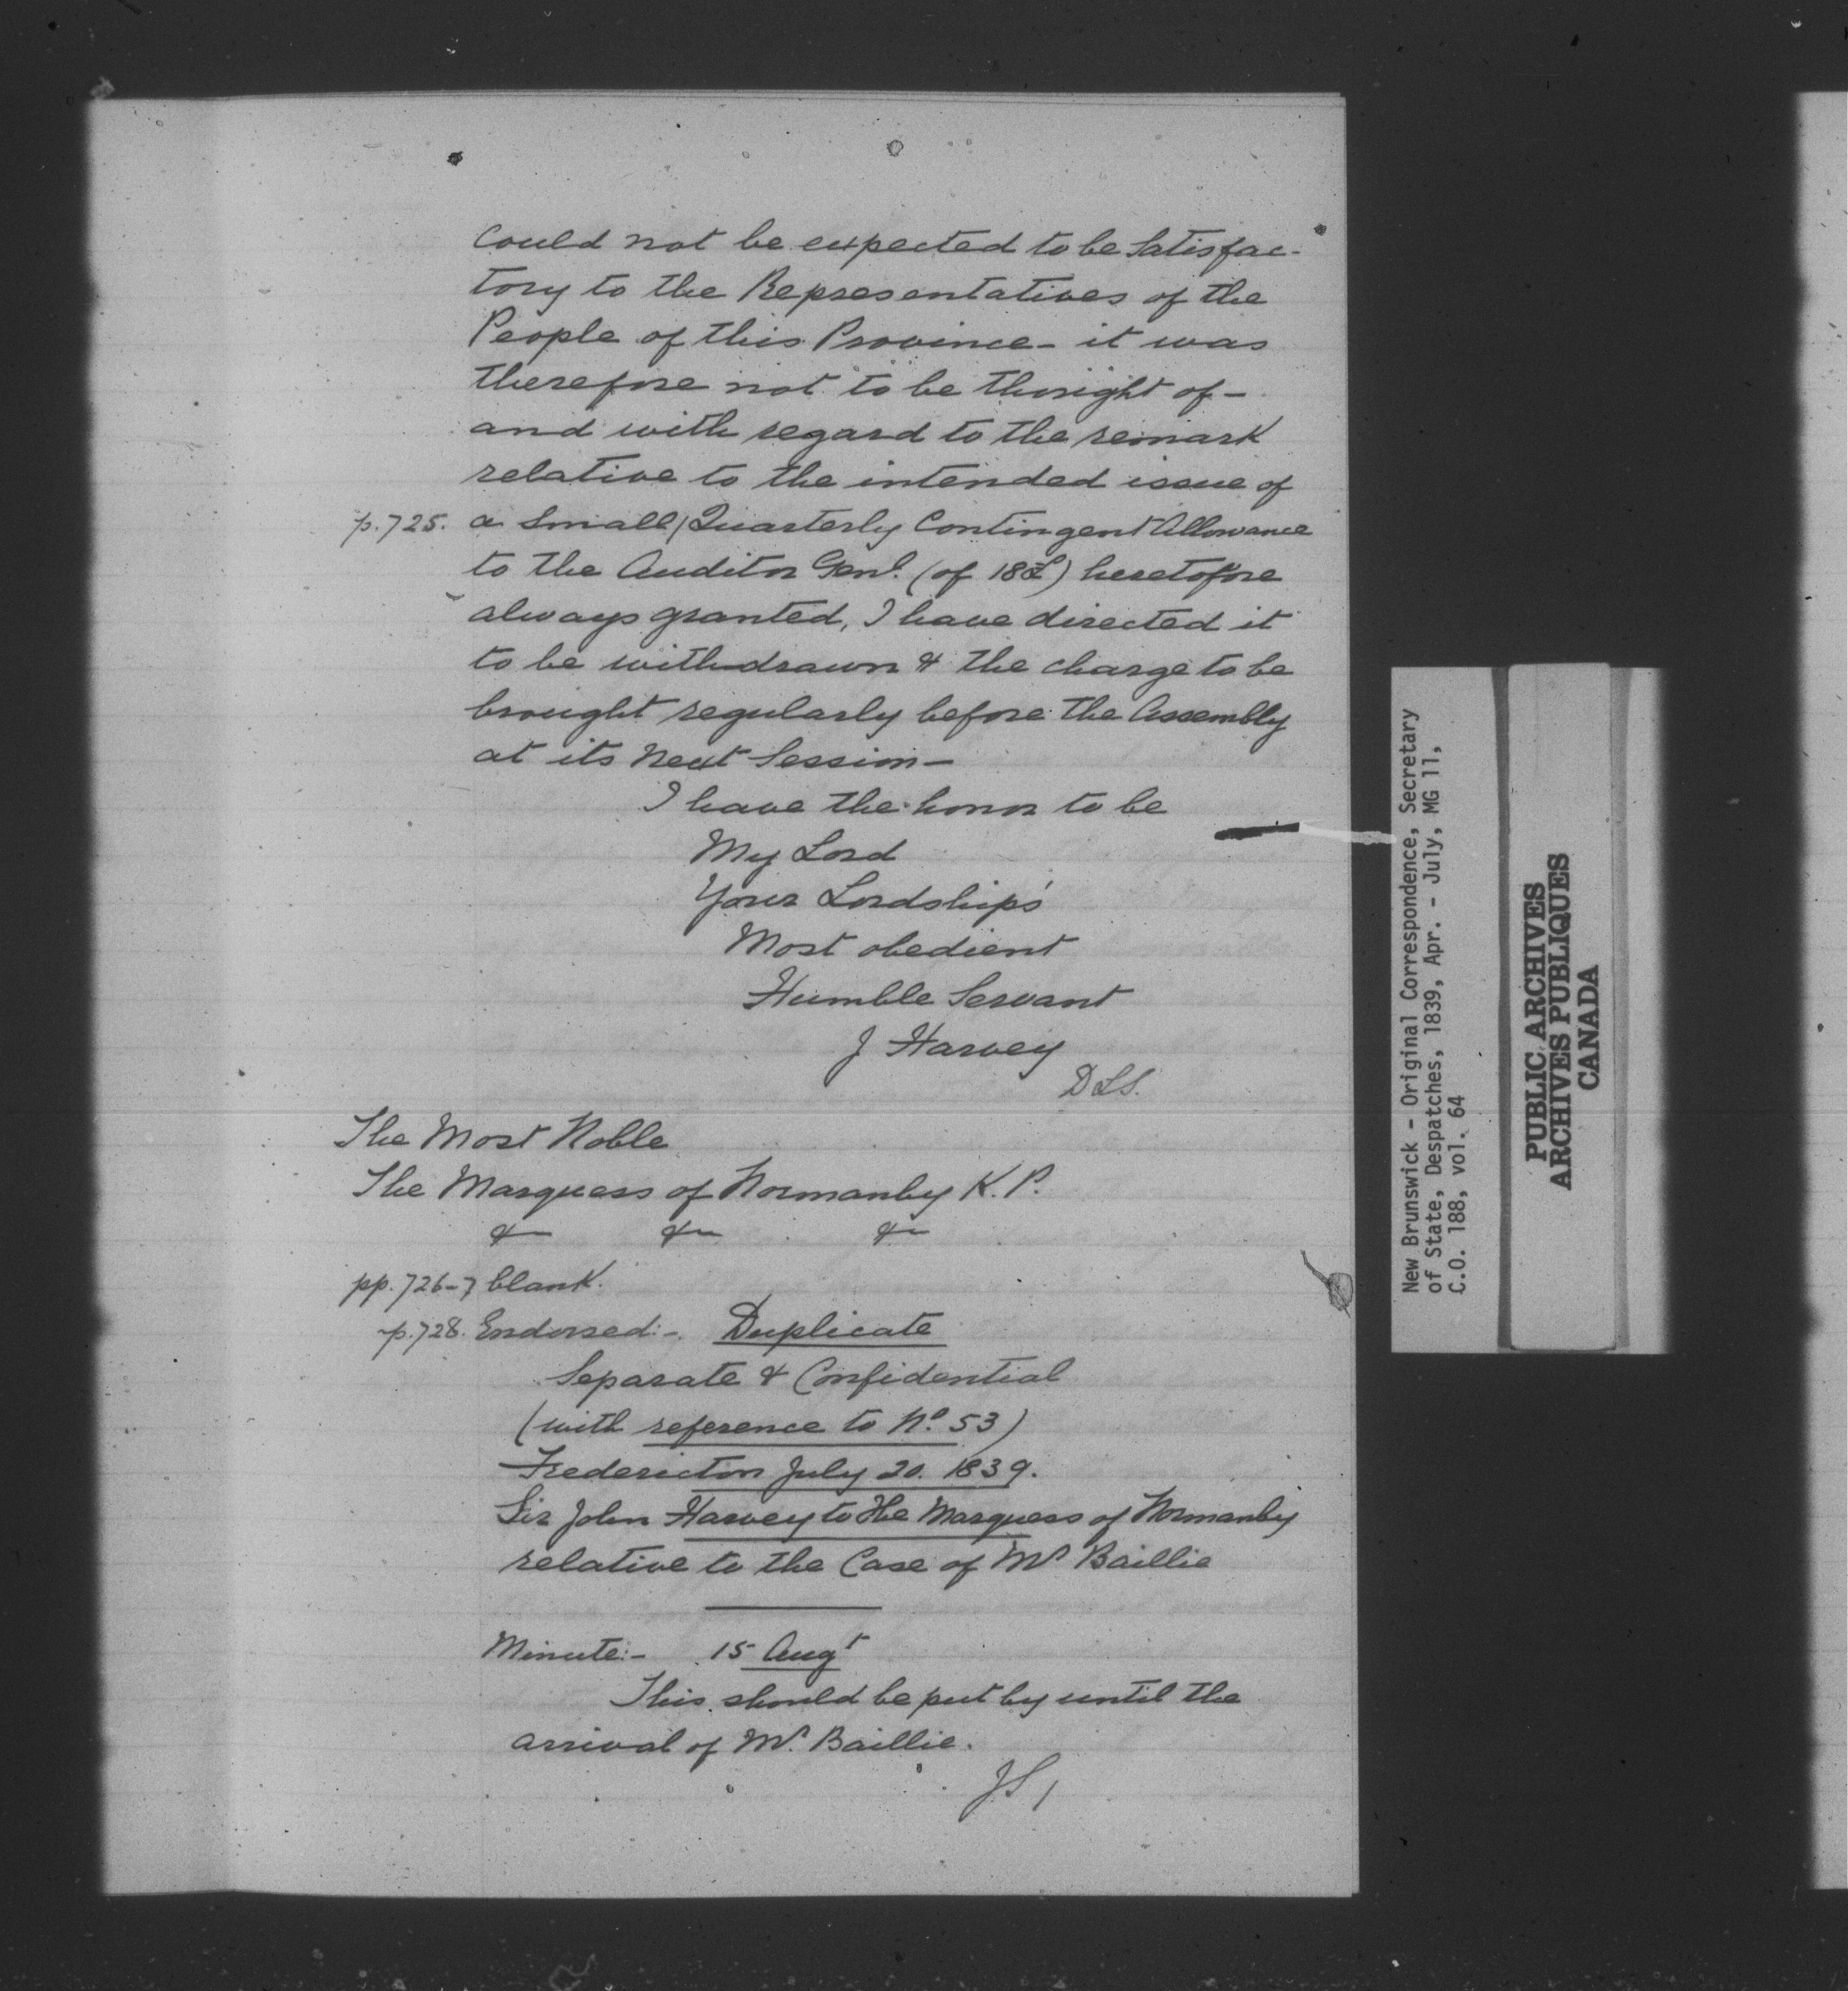 Could not be expected to be Satisfac-
tory to the Representatives of the
People of this Province - it was
therefore not to be thought of -
and with regard to the remark
relative to the intended issue of
p.725. a Small / Quarterly Contingent Allowance
to the Auditor Genl. (of 18£) heretofore
always granted, I have directed it
to be withdrawn & the charge to be
brought regularly before the Assembly
at its Next Session -
I have the honor to be
My Lord
Your Lordship's
Most obedient
Humble Servant
J Harvey
D L S.
The Most Noble
The Marquess of Normanby K.P.
&c &c &c
pp. 726-7 blank.
p.728. Endorsed:- Duplicate
Separate & Confidential
(with reference to No. 53)
Fredericton July 20. 1839.
Sir John Harvey to The Marquess of Normanby
relative to the Case of Mr Baillie
Minute:- 15 Augt
This should be put by until the
arrival of Mr. Baillie.
JS /
New Brunswick - Original Correspondence, Secretary
of State, Despatches, 1839, Apr. - July, MG 11,
C.O. 188, vol. 64
PUBLIC ARCHIVES
ARCHIVES PUBLIQUES
CANADA